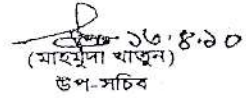 ১৩.৪.১০
(মাহমুদা খাতুন)
উপ-সচিব